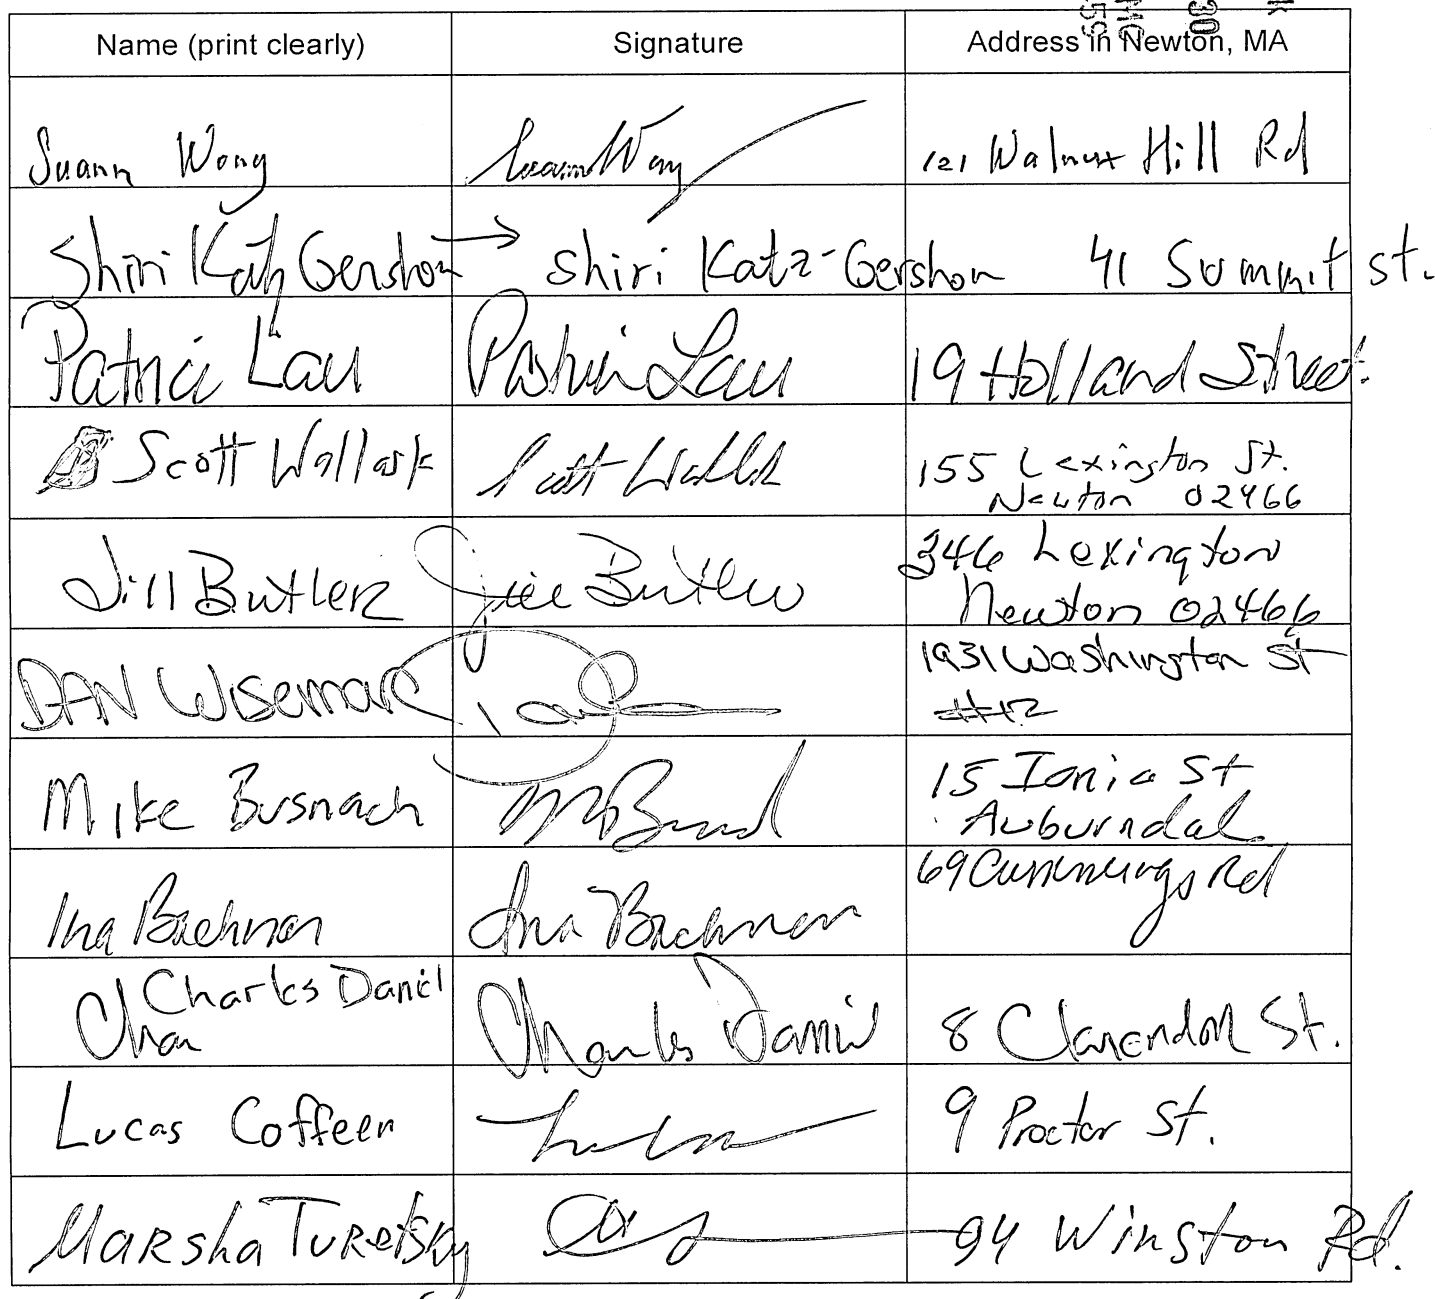 Name (print clearly) Signature Address in Newton, MA
Suann Wong Suann Wong 121 Walnut Hill Rd
Shiri Katz Gershon → Shiri Katz-Gershon 41 Summit St.
Patrici Lau Patricia Lau 19 Holland Street.
Scott Wallask Scott Wallask 155 Lexington St.
Newton 02466
Jill Butler Jill Butler 346 Lexington
Newton 02466
DAN Wiseman 1931 Washington St
#12
Mike Busnach 15 Ionia St
Auburndale
Ina Bachman Ina Bachman 69 Cummings Rd
Charles Daniel
Chan Charles Daniel 8 Clarendon St.
Lucas Coffeen 9 Proctor St.
Marsha Turetsky 94 Winston Rd.